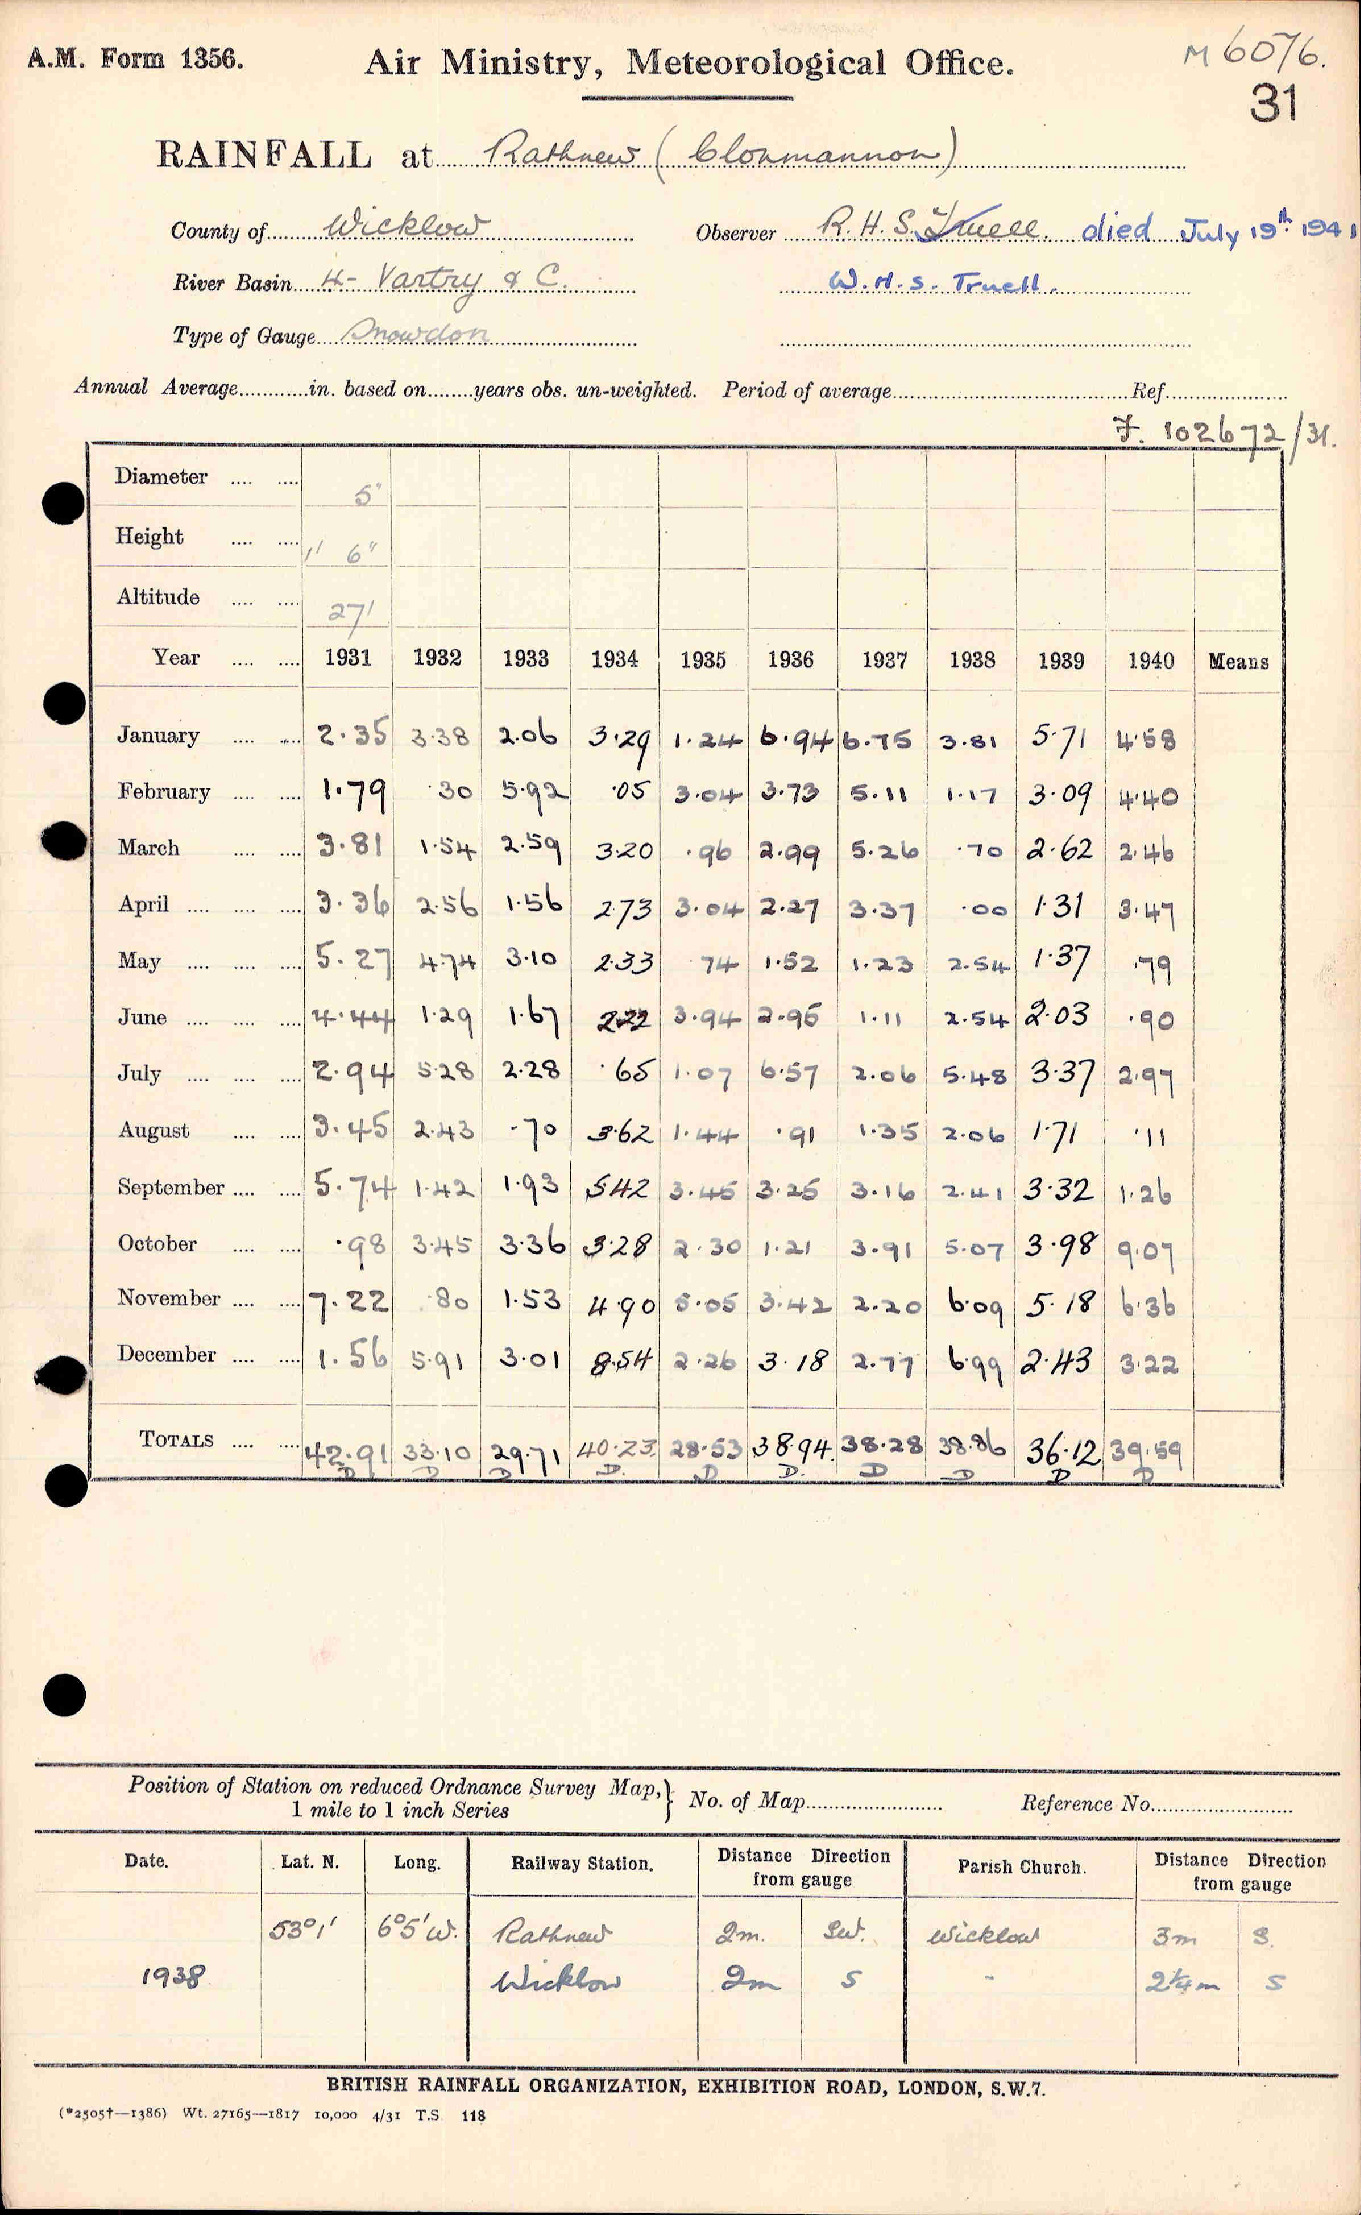 A.M. Form 1356.
Air Ministry, Meteorological Office.
M 6076.
31
RAINFALL at Rathnew (Clonmannon)
County of Wicklow Observer R.H.S. Truell. died July 19th 1941
River Basin 4- Vartry & C. W.H.S. Truell.
Type of Gauge Snowdon
Annual Average............in. based on........years obs. un-weighted. Period of average............Ref............
F. 102672/31.
Diameter .... .... 5"
Height .... .... 1' 6"
Altitude .... .... 27'
Year .... .... 1931 1932 1933 1934 1935 1936 1937 1938 1939 1940 Means
January .... .... 2.35 3.38 2.06 3.29 1.24 6.94 6.75 3.81 5.71 4.58
February .... .... 1.79 .30 5.92 .05 3.04 3.73 5.11 1.17 3.09 4.40
March .... .... 3.81 1.54 2.59 3.20 .96 2.99 5.26 .70 2.62 2.46
April .... .... .... 3.36 2.56 1.56 2.73 3.04 2.27 3.37 .00 1.31 3.47
May .... .... .... 5.27 4.74 3.10 2.33 .74 1.52 1.23 2.54 1.37 .79
June .... .... .... 4.44 1.29 1.67 2.22 3.94 2.95 1.11 2.54 2.03 .90
July .... .... .... 2.94 5.28 2.28 .65 1.07 6.57 2.06 5.48 3.37 2.97
August .... .... 3.45 2.43 .70 3.62 1.44 .91 1.35 2.06 1.71 .11
September .... .... 5.74 1.42 1.93 5.42 3.45 3.25 3.16 2.41 3.32 1.26
October .... .... .98 3.45 3.36 3.28 2.30 1.21 3.91 5.07 3.98 9.07
November .... .... 7.22 .80 1.53 4.90 5.05 3.42 2.20 6.09 5.18 6.36
December .... .... 1.56 5.91 3.01 8.54 2.26 3.18 2.77 6.99 2.43 3.22
TOTALS .... .... 42.91 33.10 29.71 40.23 28.53 38.94 38.28 38.86 36.12 39.59
D D D D. D D. D D D D
Position of Station on reduced Ordnance Survey Map, } No. of Map............ Reference No............
1 mile to 1 inch Series
Date. Lat. N. Long. Railway Station. Distance Direction from gauge Parish Church. Distance Direction from gauge
53°1' 6°5'W. Rathnew 2m. SW. Wicklow 3m S.
1938 Wicklow 2m S - 2¼m S
BRITISH RAINFALL ORGANIZATION, EXHIBITION ROAD, LONDON, S.W.7.
(*2505†—1386) Wt. 27165—1817 10,000 4/31 T.S. 118